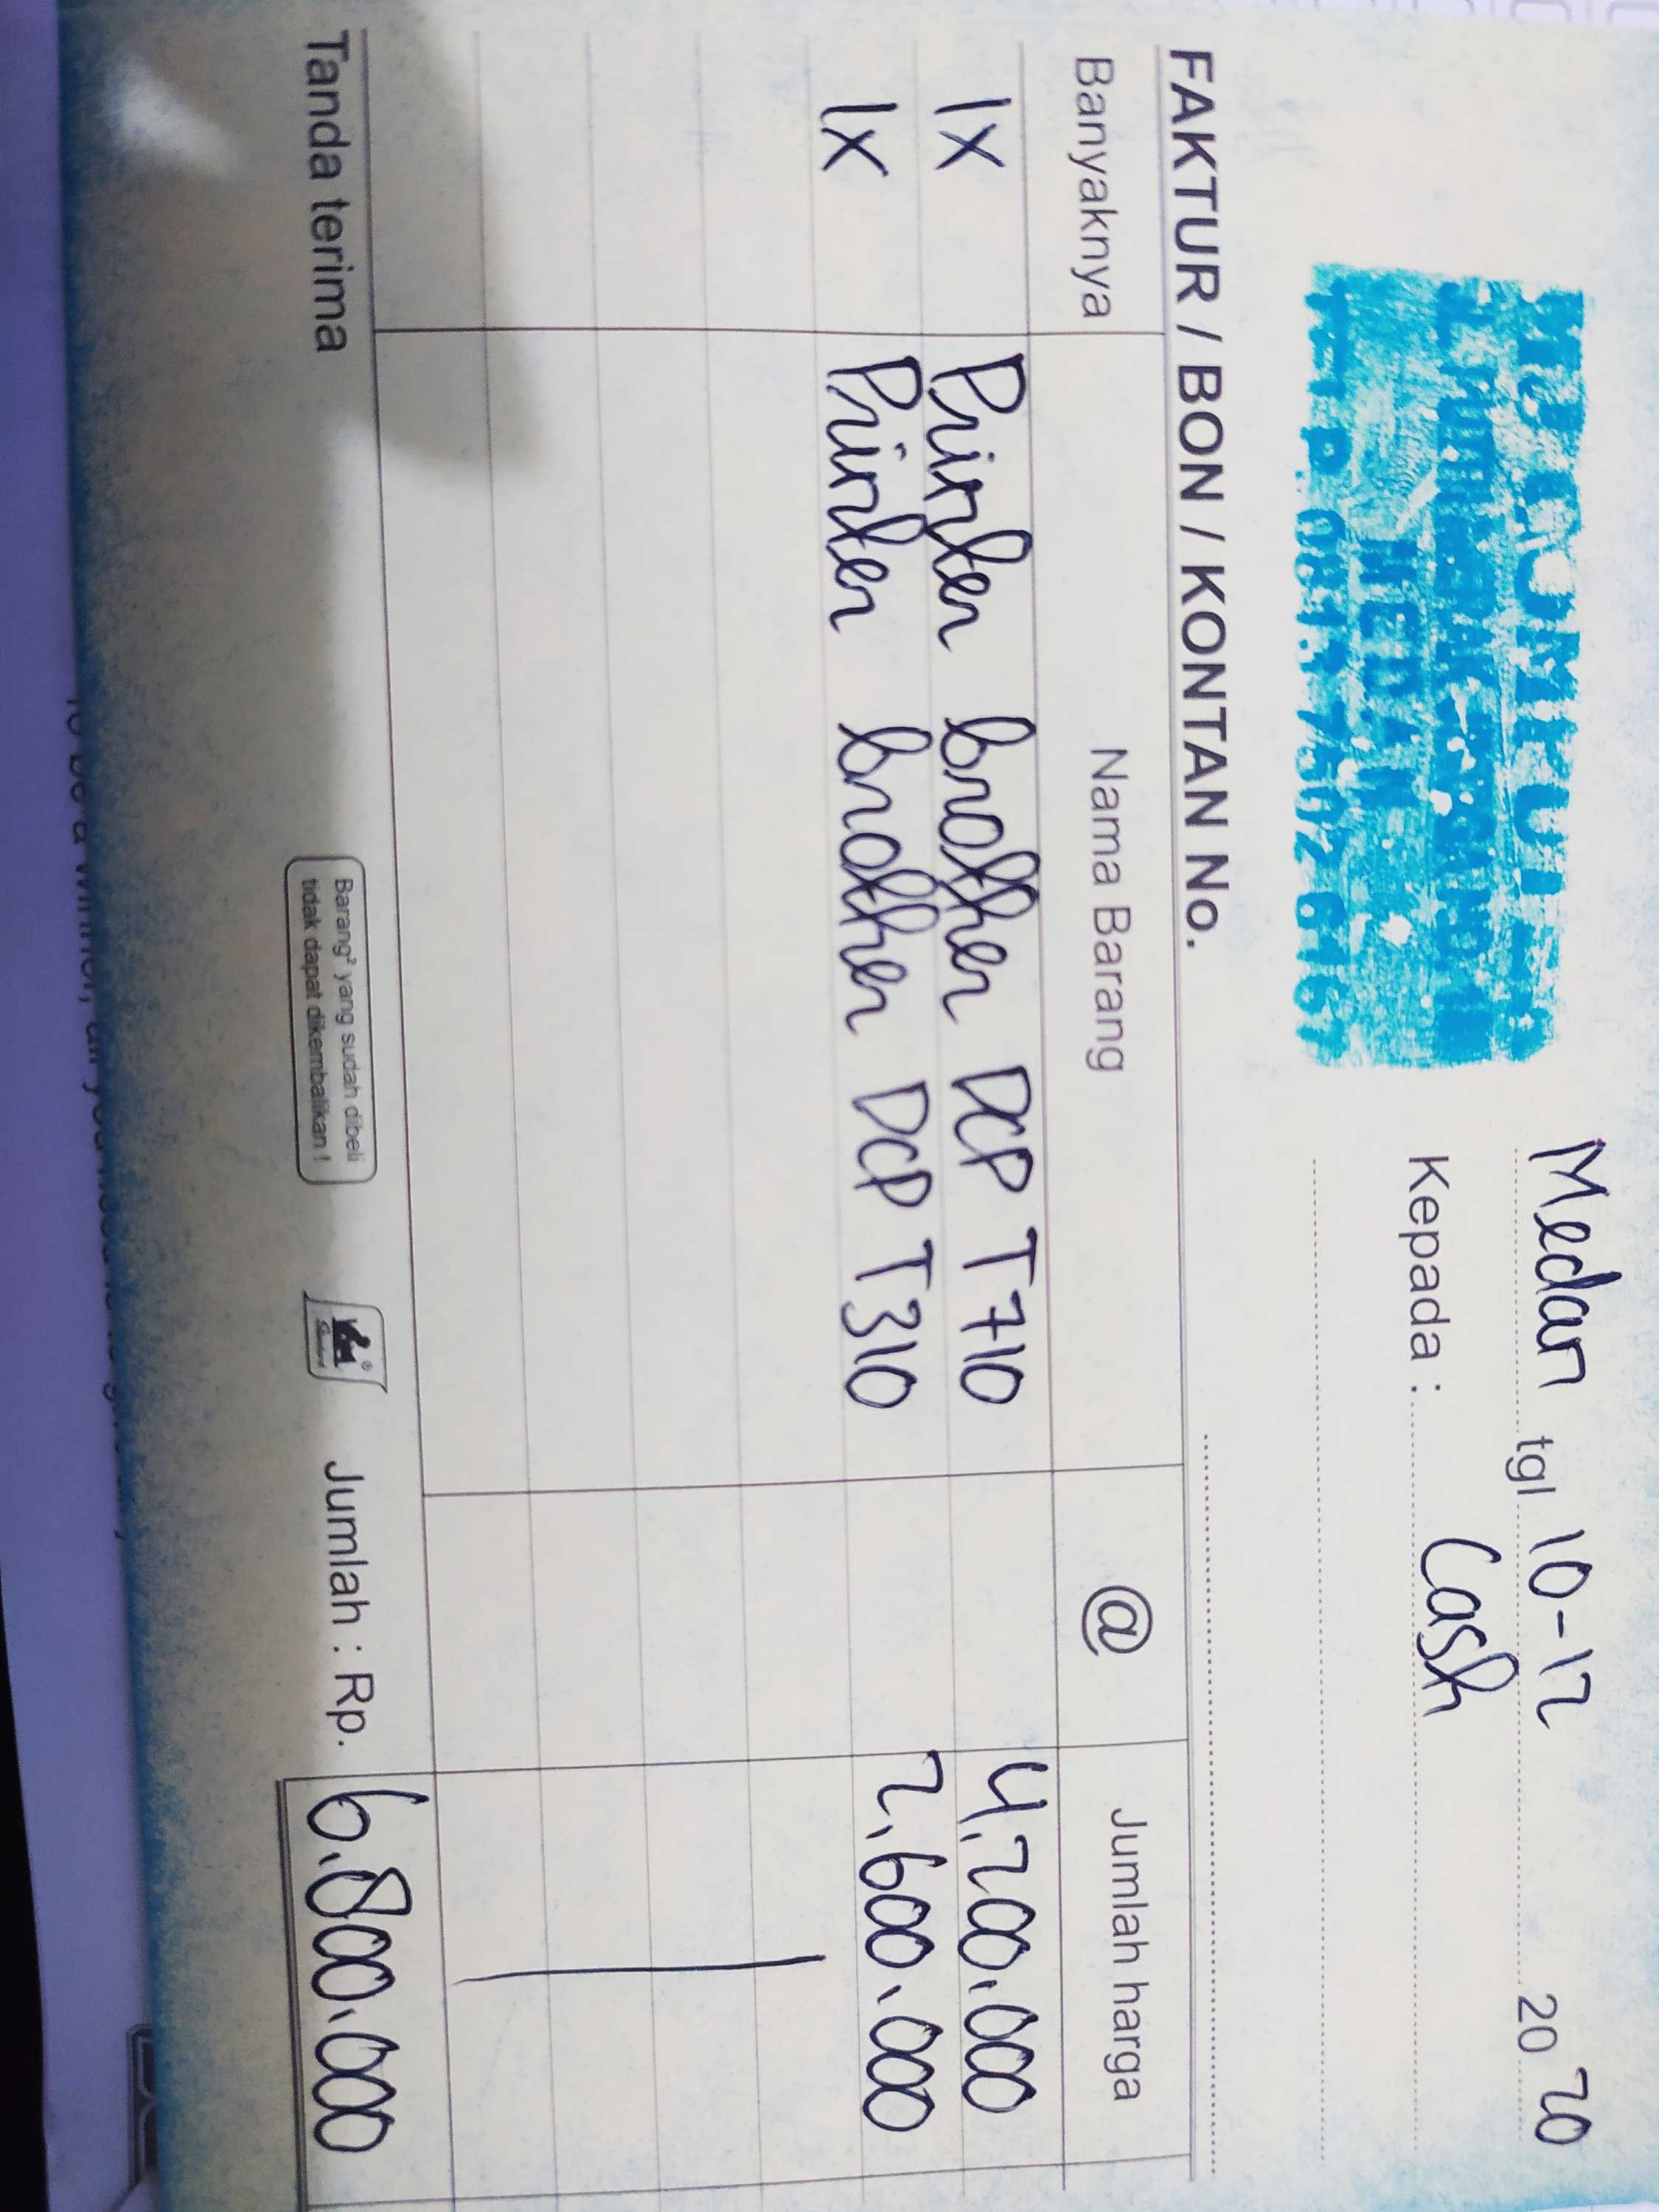 MEDAN
Medan tgl 10-12 2020
Kepada : Cash
FAKTUR / BON / KONTAN No.
Banyaknya Nama Barang @ Jumlah harga
1x Printer brother DCP T710 4.200.000
1x Printer brother DCP T310 2.600.000
Tanda terima
Barang² yang sudah dibeli
tidak dapat dikembalikan !
Jumlah : Rp. 6.800.000